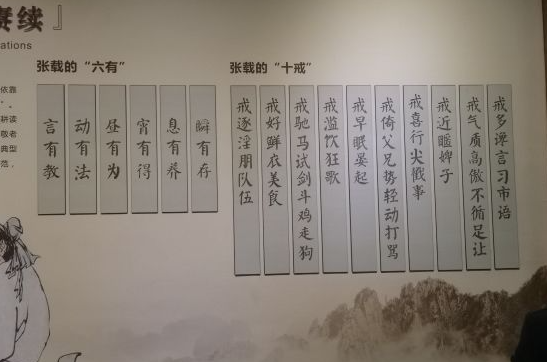 赓续』
ations
依靠
”。
耕读
敬老
典型
范，
张载的“六有”
言有教
动有法
昼有为
宵有得
息有养
瞬有存
张载的“十戒”
戒逐淫朋队伍
戒好鲜衣美食
戒驰马试剑斗鸡走狗
戒滥饮狂歌
戒早眠晏起
戒倚父兄势轻动打骂
戒喜行尖戳事
戒近暱婢子
戒气质高傲不循足让
戒多谗言习市语